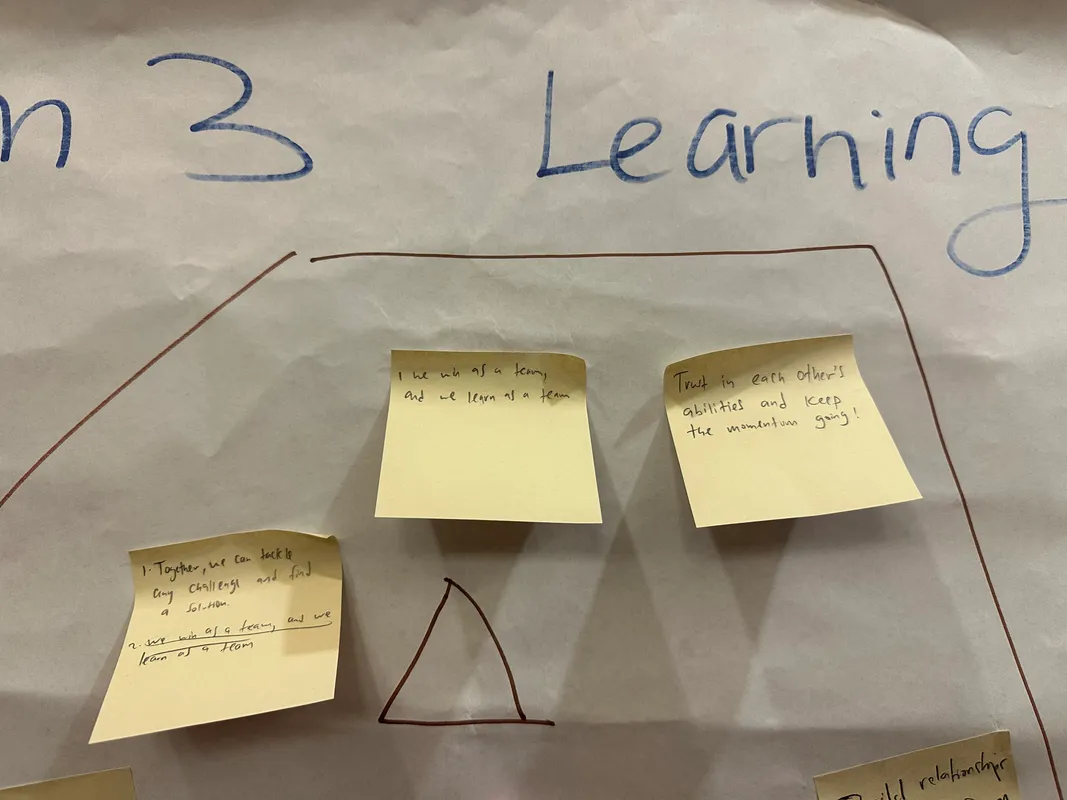 n 3 Learning
1 we win as a team,
and we learn as a team
Trust in each other's
abilities and keep
the momentum going!
1. Together, we can tackle
any challenge and find
a solution.
2. we win as a team, and we
learn as a team
Build relationship